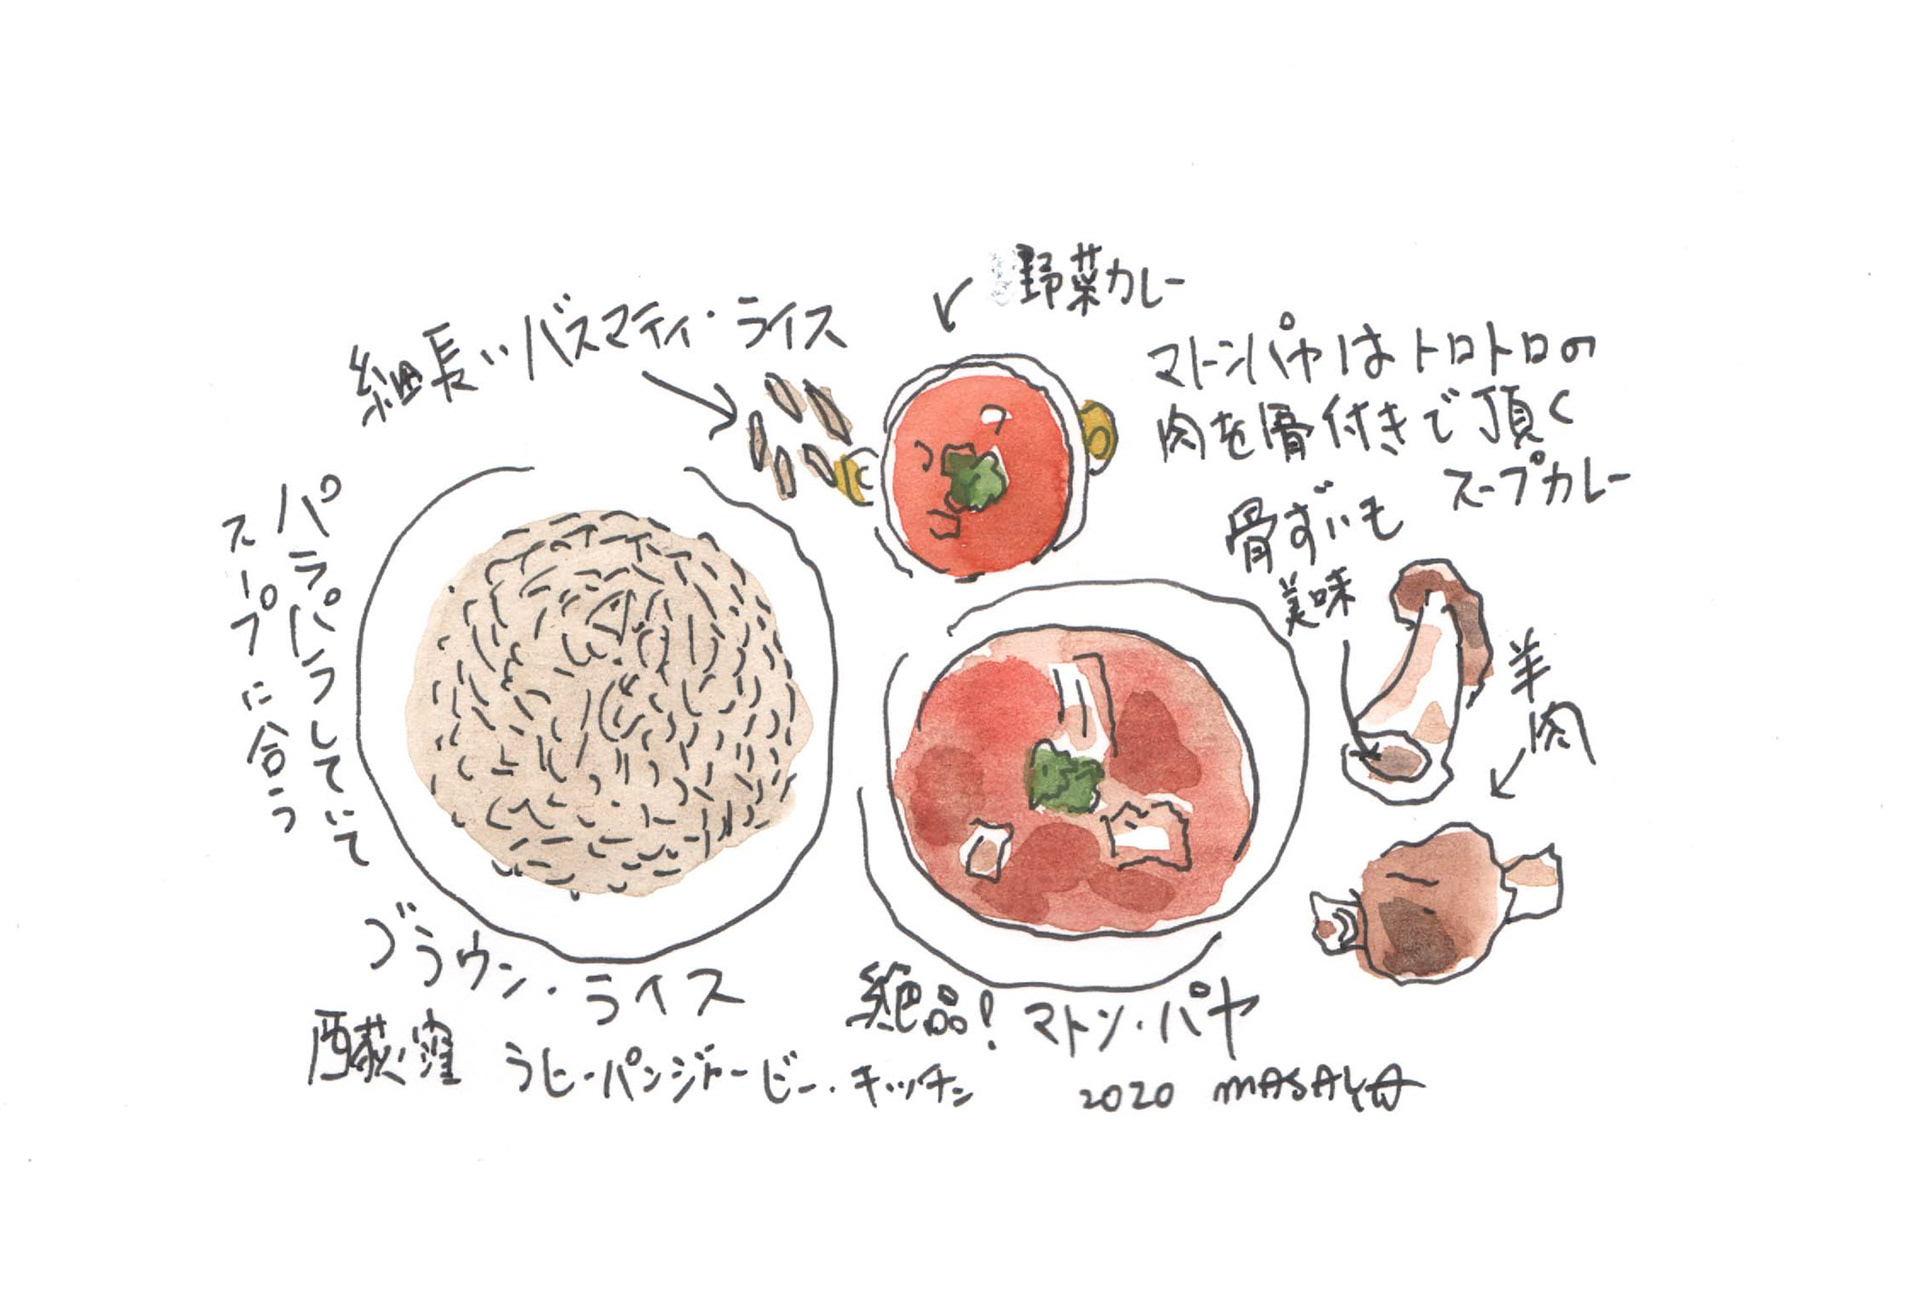 野菜カレー
細長いバスマティ・ライス
マトンパヤはトロトロの
肉を骨付きで頂く
スープカレー
骨ずいも
美味
羊肉
パラパラしていて
スープに合う
ブラウン・ライス
絶品！マトン・パヤ
西荻窪 ラヒ・パンジャービー・キッチン
2020 MASAYA